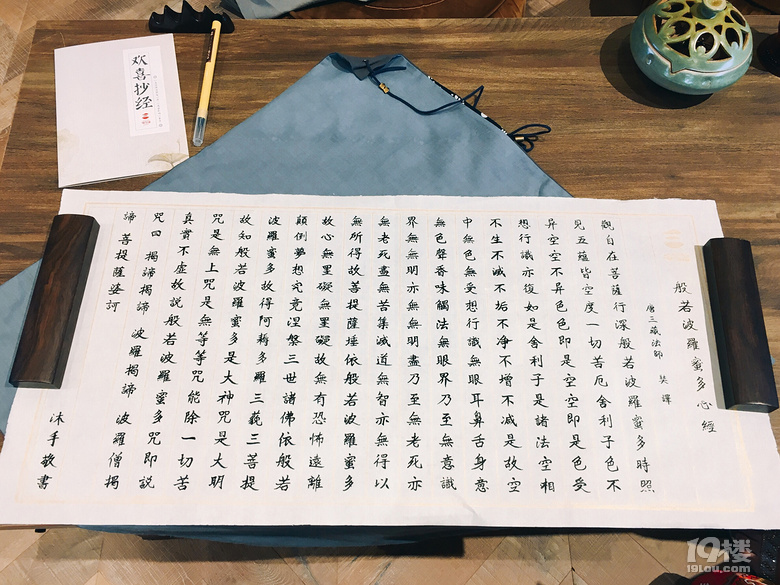 欢喜抄经
般若波羅蜜多心經
唐三藏法師 奘譯
觀自在菩薩行深般若波羅蜜多時照
見五蘊皆空度一切苦厄舍利子色不
異空空不異色色即是空空即是色受
想行識亦復如是舍利子是諸法空相
不生不滅不垢不净不增不减是故空
中無色無受想行識無眼耳鼻舌身意
無色聲香味觸法無眼界乃至無意識
界無無明亦無無明盡乃至無老死亦
無老死盡無苦集滅道無智亦無得以
無所得故菩提薩埵依般若波羅蜜多
故心無罣礙無罣礙故無有恐怖遠離
顛倒夢想究竟涅槃三世諸佛依般若
波羅蜜多故得阿耨多羅三藐三菩提
故知般若波羅蜜多是大神咒是大明
咒是無上咒是無等等咒能除一切苦
真實不虛故說般若波羅蜜多咒即說
咒曰 揭諦揭諦 波羅揭諦 波羅僧揭
諦 菩提薩婆訶
沐手敬書
19楼
19lou.com